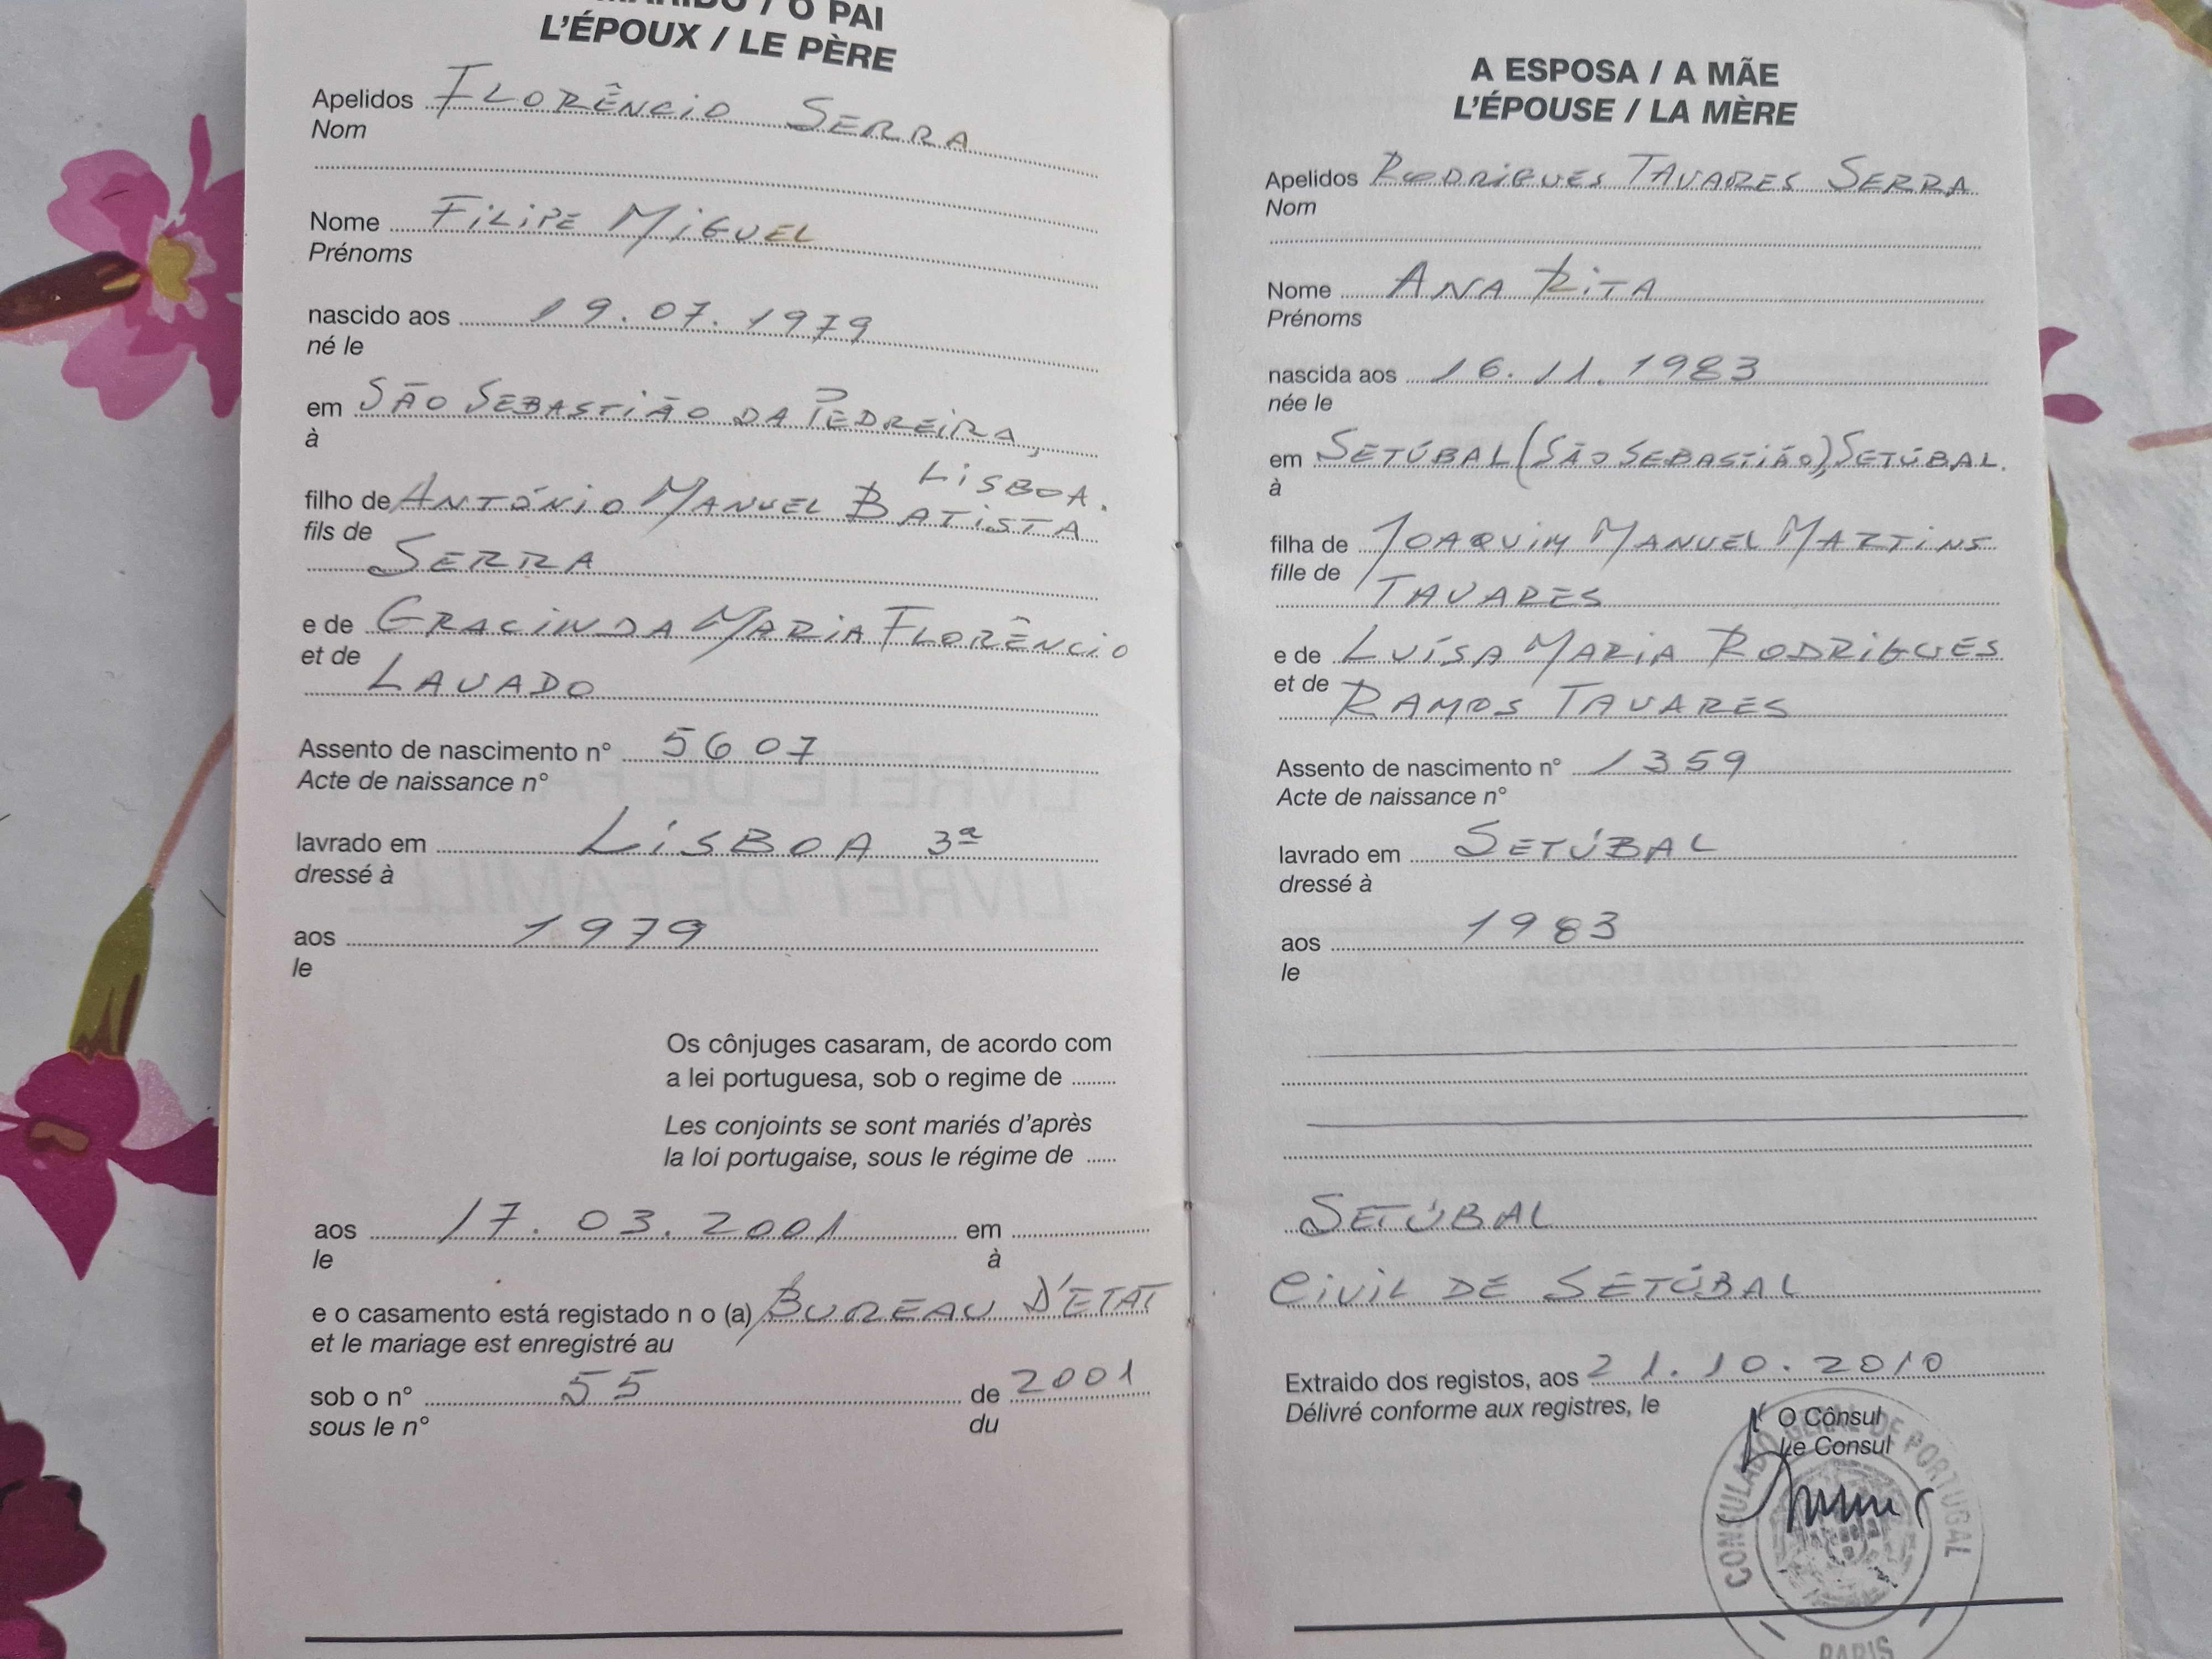 MARIDO / O PAI
L'ÉPOUX / LE PÈRE
Apelidos FLORÊNCIO SERRA
Nom
Nome FILIPE MIGUEL
Prénoms
nascido aos 19.07.1979
né le
em SÃO SEBASTIÃO DA PEDREIRA,
à
LISBOA.
filho de ANTÓNIO MANUEL BATISTA
fils de
SERRA
e de GRACINDA MARIA FLORÊNCIO
et de
LAVADO
Assento de nascimento n° 5607
Acte de naissance n°
lavrado em LISBOA 3ª
dressé à
aos 1979
le
Os cônjuges casaram, de acordo com
a lei portuguesa, sob o regime de ........
Les conjoints se sont mariés d'après
la loi portugaise, sous le régime de ......
aos 17.03.2001 em
le à
e o casamento está registado n o (a) BUREAU D'ETAT
et le mariage est enregistré au
sob o n° 55 de 2001
sous le n° du
A ESPOSA / A MÃE
L'ÉPOUSE / LA MÈRE
Apelidos RODRIGUES TAVARES SERRA
Nom
Nome ANA RITA
Prénoms
nascida aos 16.11.1983
née le
em SETÚBAL (SÃO SEBASTIÃO), SETÚBAL.
à
filha de JOAQUIM MANUEL MARTINS
fille de
TAVARES
e de LUÍSA MARIA RODRIGUES
et de
RAMOS TAVARES
Assento de nascimento n° 1359
Acte de naissance n°
lavrado em SETÚBAL
dressé à
aos 1983
le
SETÚBAL
CIVIL DE SETÚBAL
Extraido dos registos, aos 21.10.2010
Délivré conforme aux registres, le
O Cônsul
Le Consul
CONSULADO GERAL DE PORTUGAL
PARIS